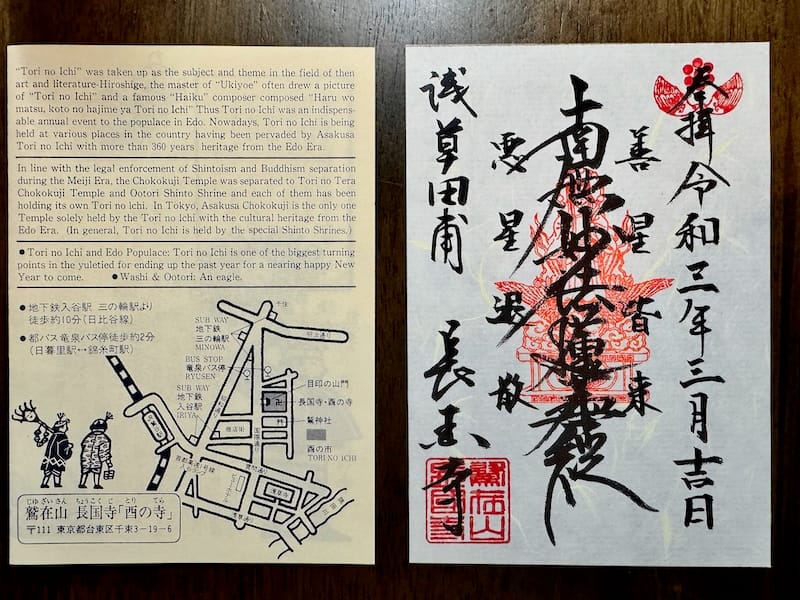 "Tori no Ichi" was taken up as the subject and theme in the field of then
art and literature-Hiroshige, the master of "Ukiyoe" often drew a picture
of "Tori no Ichi" and a famous "Haiku" composer composed "Haru wo
matsu, koto no hajime ya Tori no Ichi" Thus Tori no Ichi was an indispens-
able annual event to the populace in Edo. Nowadays, Tori no Ichi is being
held at various places in the country having been pervaded by Asakusa
Tori no Ichi with more than 360 years heritage from the Edo Era.
In line with the legal enforcement of Shintoism and Buddhism separation
during the Meiji Era, the Chokokuji Temple was separated to Tori no Tera
Chokokuji Temple and Ootori Shinto Shrine and each of them has been
holding its own Tori no Ichi. In Tokyo, Asakusa Chokokuji is the only one
Temple solely held by the Tori no Ichi with the cultural heritage from the
Edo Era. (In general, Tori no Ichi is held by the special Shinto Shrines.)
●Tori no Ichi and Edo Populace: Tori no Ichi is one of the biggest turning
points in the yuletied for ending up the past year for a nearing happy New
Year to come. ●Washi & Ootori: An eagle.
●地下鉄入谷駅 三の輪駅より
徒歩約10分(日比谷線)
●都バス竜泉バス停徒歩約2分
(日暮里駅↔錦糸町駅)
千住
明治通り
SUB WAY
地下鉄
三の輪駅
MINOWA
BUS STOP
竜泉バス停
RYUSEN
SUB WAY
地下鉄
入谷駅
IRIYA
国際通り
目印の山門
卍
長国寺・酉の寺
鷲神社
酉の市
TORI NO ICHI
じゅざいさん ちょうこくじ とり てら
鷲在山 長国寺「酉の寺」
〒111 東京都台東区千束3-19-6
奉拝 令和三年三月吉日
善星皆来
南無妙法蓮華経
悪星退散
浅草田甫
長国寺
鷲在山